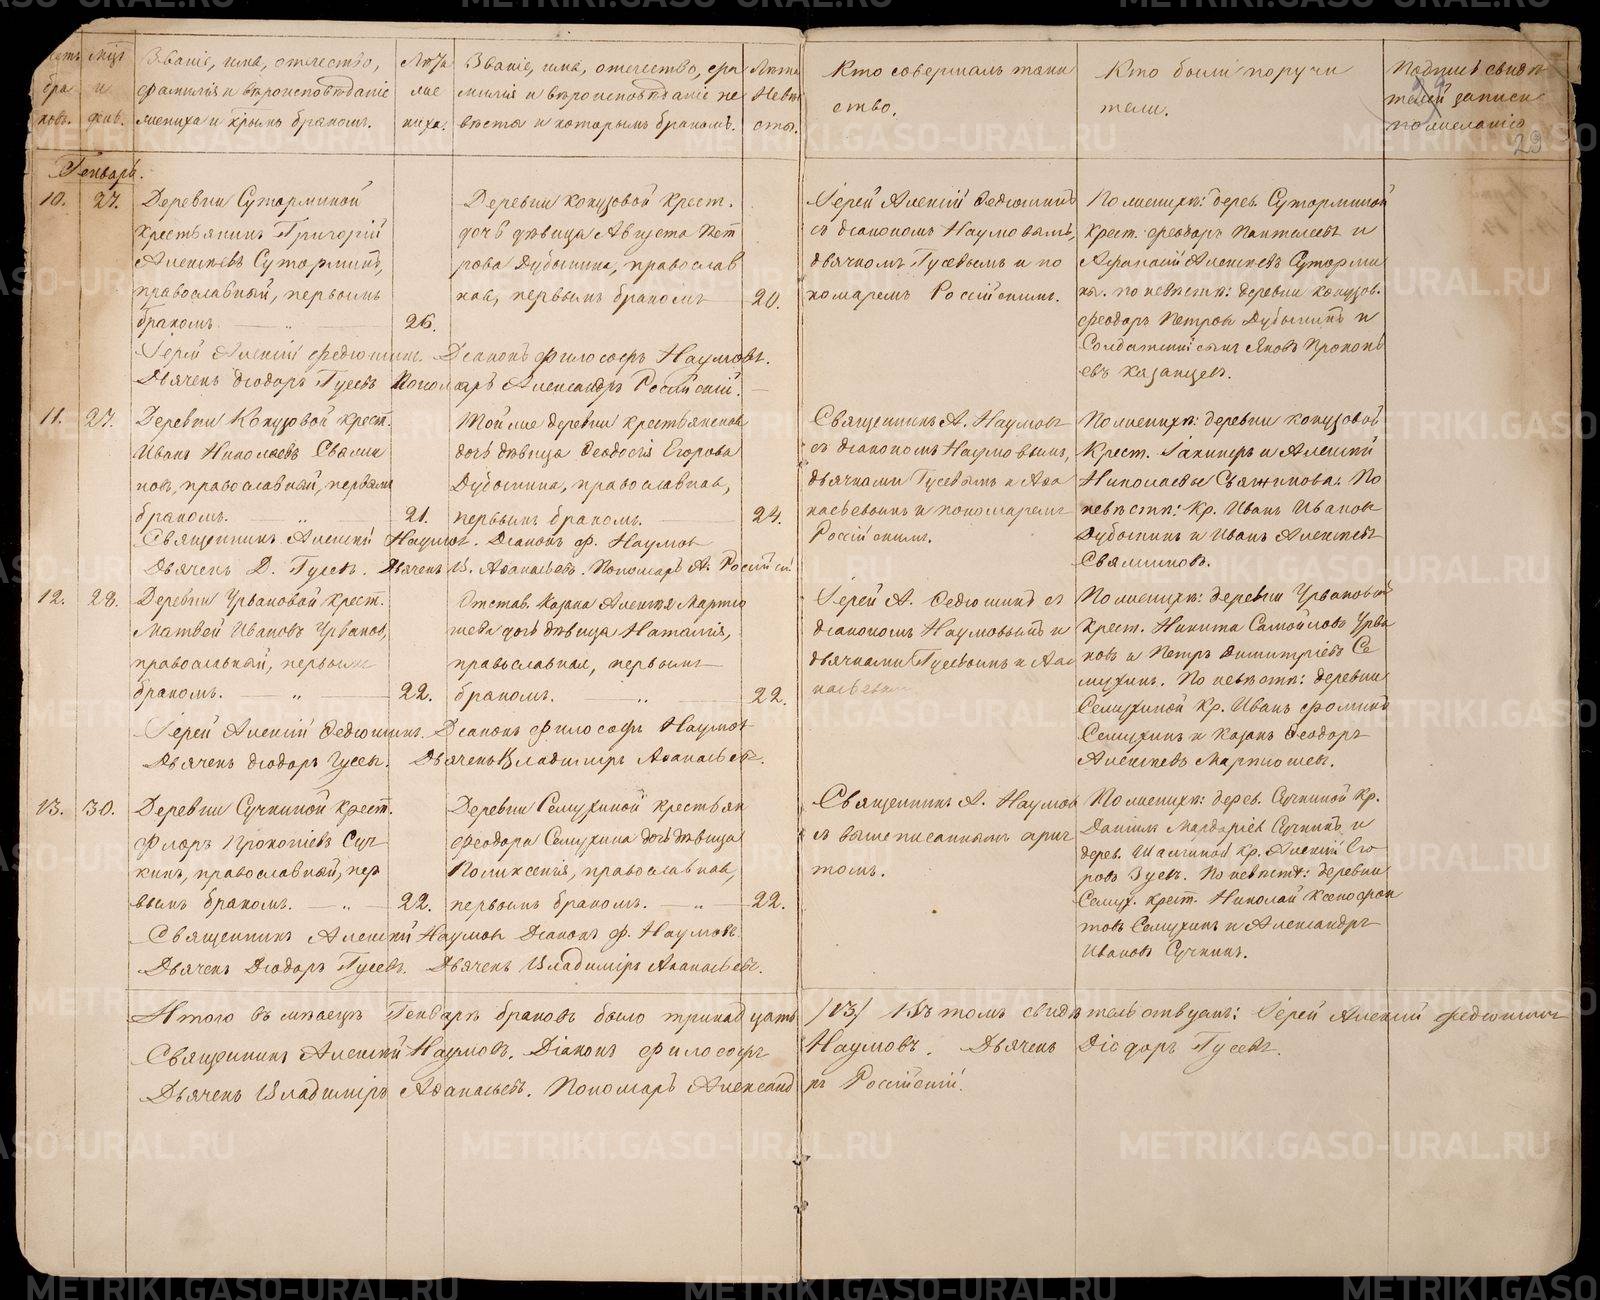 Счетъ бра ковъ.
Мѣц. и день.
Званіе, имя, отчество,
фамилія и вѣроисповѣданіе
жениха и коимъ бракомъ.
Лѣта
же
ниха.
Званіе, имя, отчество, фа
милія и вѣроисповѣданіе не
вѣсты и которымъ бракомъ.
Лѣта
Невѣ
сты.
Кто совершалъ таин
ство.
Кто были поручи
тели.
Подпись свидѣ
телей записи
по желанію
29
Генварь.
10. 27.
Деревни Суторминой
крестьянинъ Григорій
Алексѣевъ Суторминъ,
православный, первымъ
бракомъ — „ — 26.
Деревни Кокузовой крест.
дочь дѣвица Августа Пет
рова Дубынина, православ
ная, первымъ бракомъ — 20.
Іерей Алексій Ѳедюшинъ
съ діакономъ Наумовымъ,
дьячкомъ Гусевымъ и по
номаремъ Россійскимъ.
По женихѣ: дерев. Сутормной
крест. Ѳеодоръ Пантелеевъ и
Афанасій Алексѣевъ Суторми
ны. по невѣстѣ: деревни Кокузов.
Ѳеодоръ Петровъ Дубынинъ и
Солдатскій сынъ Яковъ Прокопь
евъ Казанцевъ.
Іерей Алексій Ѳедюшинъ. Діаконъ Философъ Наумовъ.
Дьячекъ Діодоръ Гусевъ Пономарь Александръ Россійскій.
11. 27.
Деревни Кокузовой крест.
Иванъ Николаевъ Свяжи
новъ, православный, первымъ
бракомъ. — „ — 21.
Той же деревни крестьянская
дочь дѣвица Ѳеодосія Егорова
Дубынина, православная,
первымъ бракомъ. — 24.
Священникъ А. Наумовъ
съ діакономъ Наумовымъ,
дьячками Гусевымъ и Афа
насьевымъ и пономаремъ
Россійскимъ.
По женихѣ: деревни Кокузовой
Крест. и Алексѣй
Николаевы Свяжиновы. По
невѣстѣ: Кр. Иванъ Ивановъ
Дубынинъ и Иванъ Алексѣевъ
Свяжиновъ.
Священникъ Алексѣй Наумовъ. Діаконъ Ф. Наумовъ
Дьячекъ Д. Гусевъ. Дьячекъ В. Афанасьевъ. Пономарь А. Россійскій.
12. 28.
Деревни Урвановой крест.
Матвей Ивановъ Урвановъ,
православный, первымъ
бракомъ. — „ — 22.
Отстав. Казака Алексѣя Мартю
шева дочь дѣвица Наталія,
православная, первымъ
бракомъ. „ 22.
Іерей А. Ѳедюшинъ съ
діакономъ Наумовымъ и
дьячками Гусевымъ и Афа
насьевымъ
По женихѣ: деревни Урвановой
Крест. Никита Самойловъ Урва
новъ и Петръ Димитріевъ Се
мухинъ. По невѣстѣ: деревни
Семухиной Кр. Иванъ Ѳоминъ
Семухинъ и Казакъ Ѳеодоръ
Алексѣевъ Мартюшевъ.
Іерей Алексій Ѳедюшинъ. Діаконъ Философъ Наумовъ
Дьячекъ Діодоръ Гусевъ. Дьячекъ Владиміръ Афанасьевъ.
13. 30.
Деревни Сучкиной крест.
Флоръ Прокопіевъ Суч
кинъ, православный, пер
вымъ бракомъ. — „ — 22.
Деревни Семухиной крестьян
Ѳеодора Семухина дочь дѣвица
Поликсенія, православная,
первымъ бракомъ. — „ — 22.
Священникъ А. Наумовъ
съ вышеписаннымъ прич
томъ.
По женихѣ: дерев. Сучкиной Кр.
Даніилъ Мардаріевъ Сучкинъ и
дерев. Шалгиной Кр. Алексѣй Его
ровъ Зуевъ. По невѣстѣ: деревни
Семух. крест. Николай Ксенофон
товъ Семухинъ и Александръ
Ивановъ Сучкинъ.
Священникъ Алексѣй Наумовъ Діаконъ Ф. Наумовъ.
Дьячекъ Діодоръ Гусевъ. Дьячекъ Владиміръ Афанасьевъ.
Итого въ мѣсяцѣ Генварѣ браковъ было тринадцать /13/ Въ томъ свидѣтельствуемъ: Іерей Алексій Ѳедюшинъ
Священникъ Алексѣй Наумовъ. Діаконъ Философъ Наумовъ. Дьячекъ Діодоръ Гусевъ.
Дьячекъ Владиміръ Афанасьевъ. Пономарь Александръ Россійскій.
METRIKI.GASO-URAL.RU